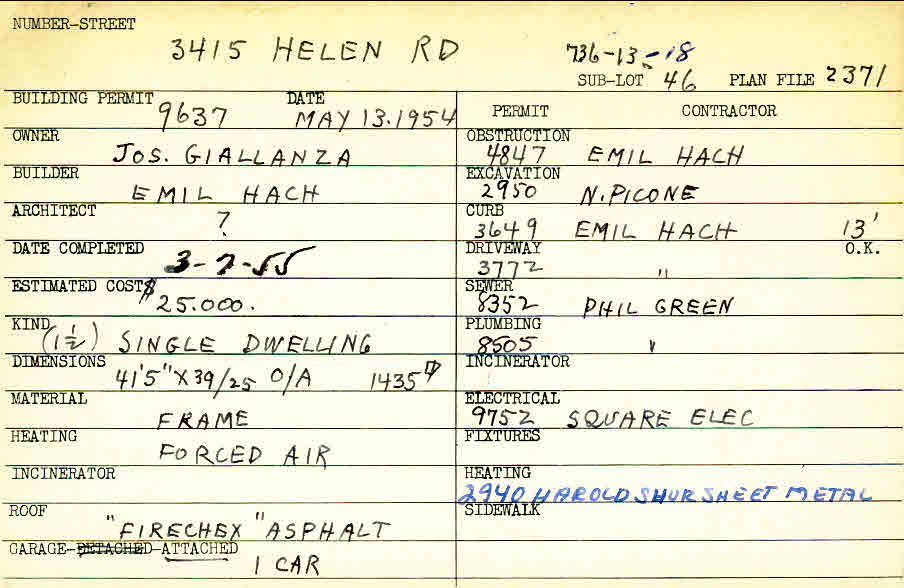 NUMBER-STREET
3415 HELEN RD
736-13-18
SUB-LOT 46 PLAN FILE 2371
BUILDING PERMIT 9637 DATE MAY 13.1954
OWNER JOS. GIALLANZA
BUILDER EMIL HACH
ARCHITECT ?
DATE COMPLETED 3-7-55
ESTIMATED COST $25.000.
KIND (1½) SINGLE DWELLING
DIMENSIONS 41'5"X39/25 O/A 1435
MATERIAL FRAME
HEATING FORCED AIR
INCINERATOR
ROOF "FIRECHEX" ASPHALT
GARAGE-DETACHED-ATTACHED 1 CAR
PERMIT CONTRACTOR
OBSTRUCTION 4847 EMIL HACH
EXCAVATION 2950 N.PICONE
CURB 3649 EMIL HACH 13'
DRIVEWAY 3772 " O.K.
SEWER 8352 PHIL GREEN
PLUMBING 8505 "
INCINERATOR
ELECTRICAL 9752 SQUARE ELEC
FIXTURES
HEATING 2940 HAROLD SHUR SHEET METAL
SIDEWALK